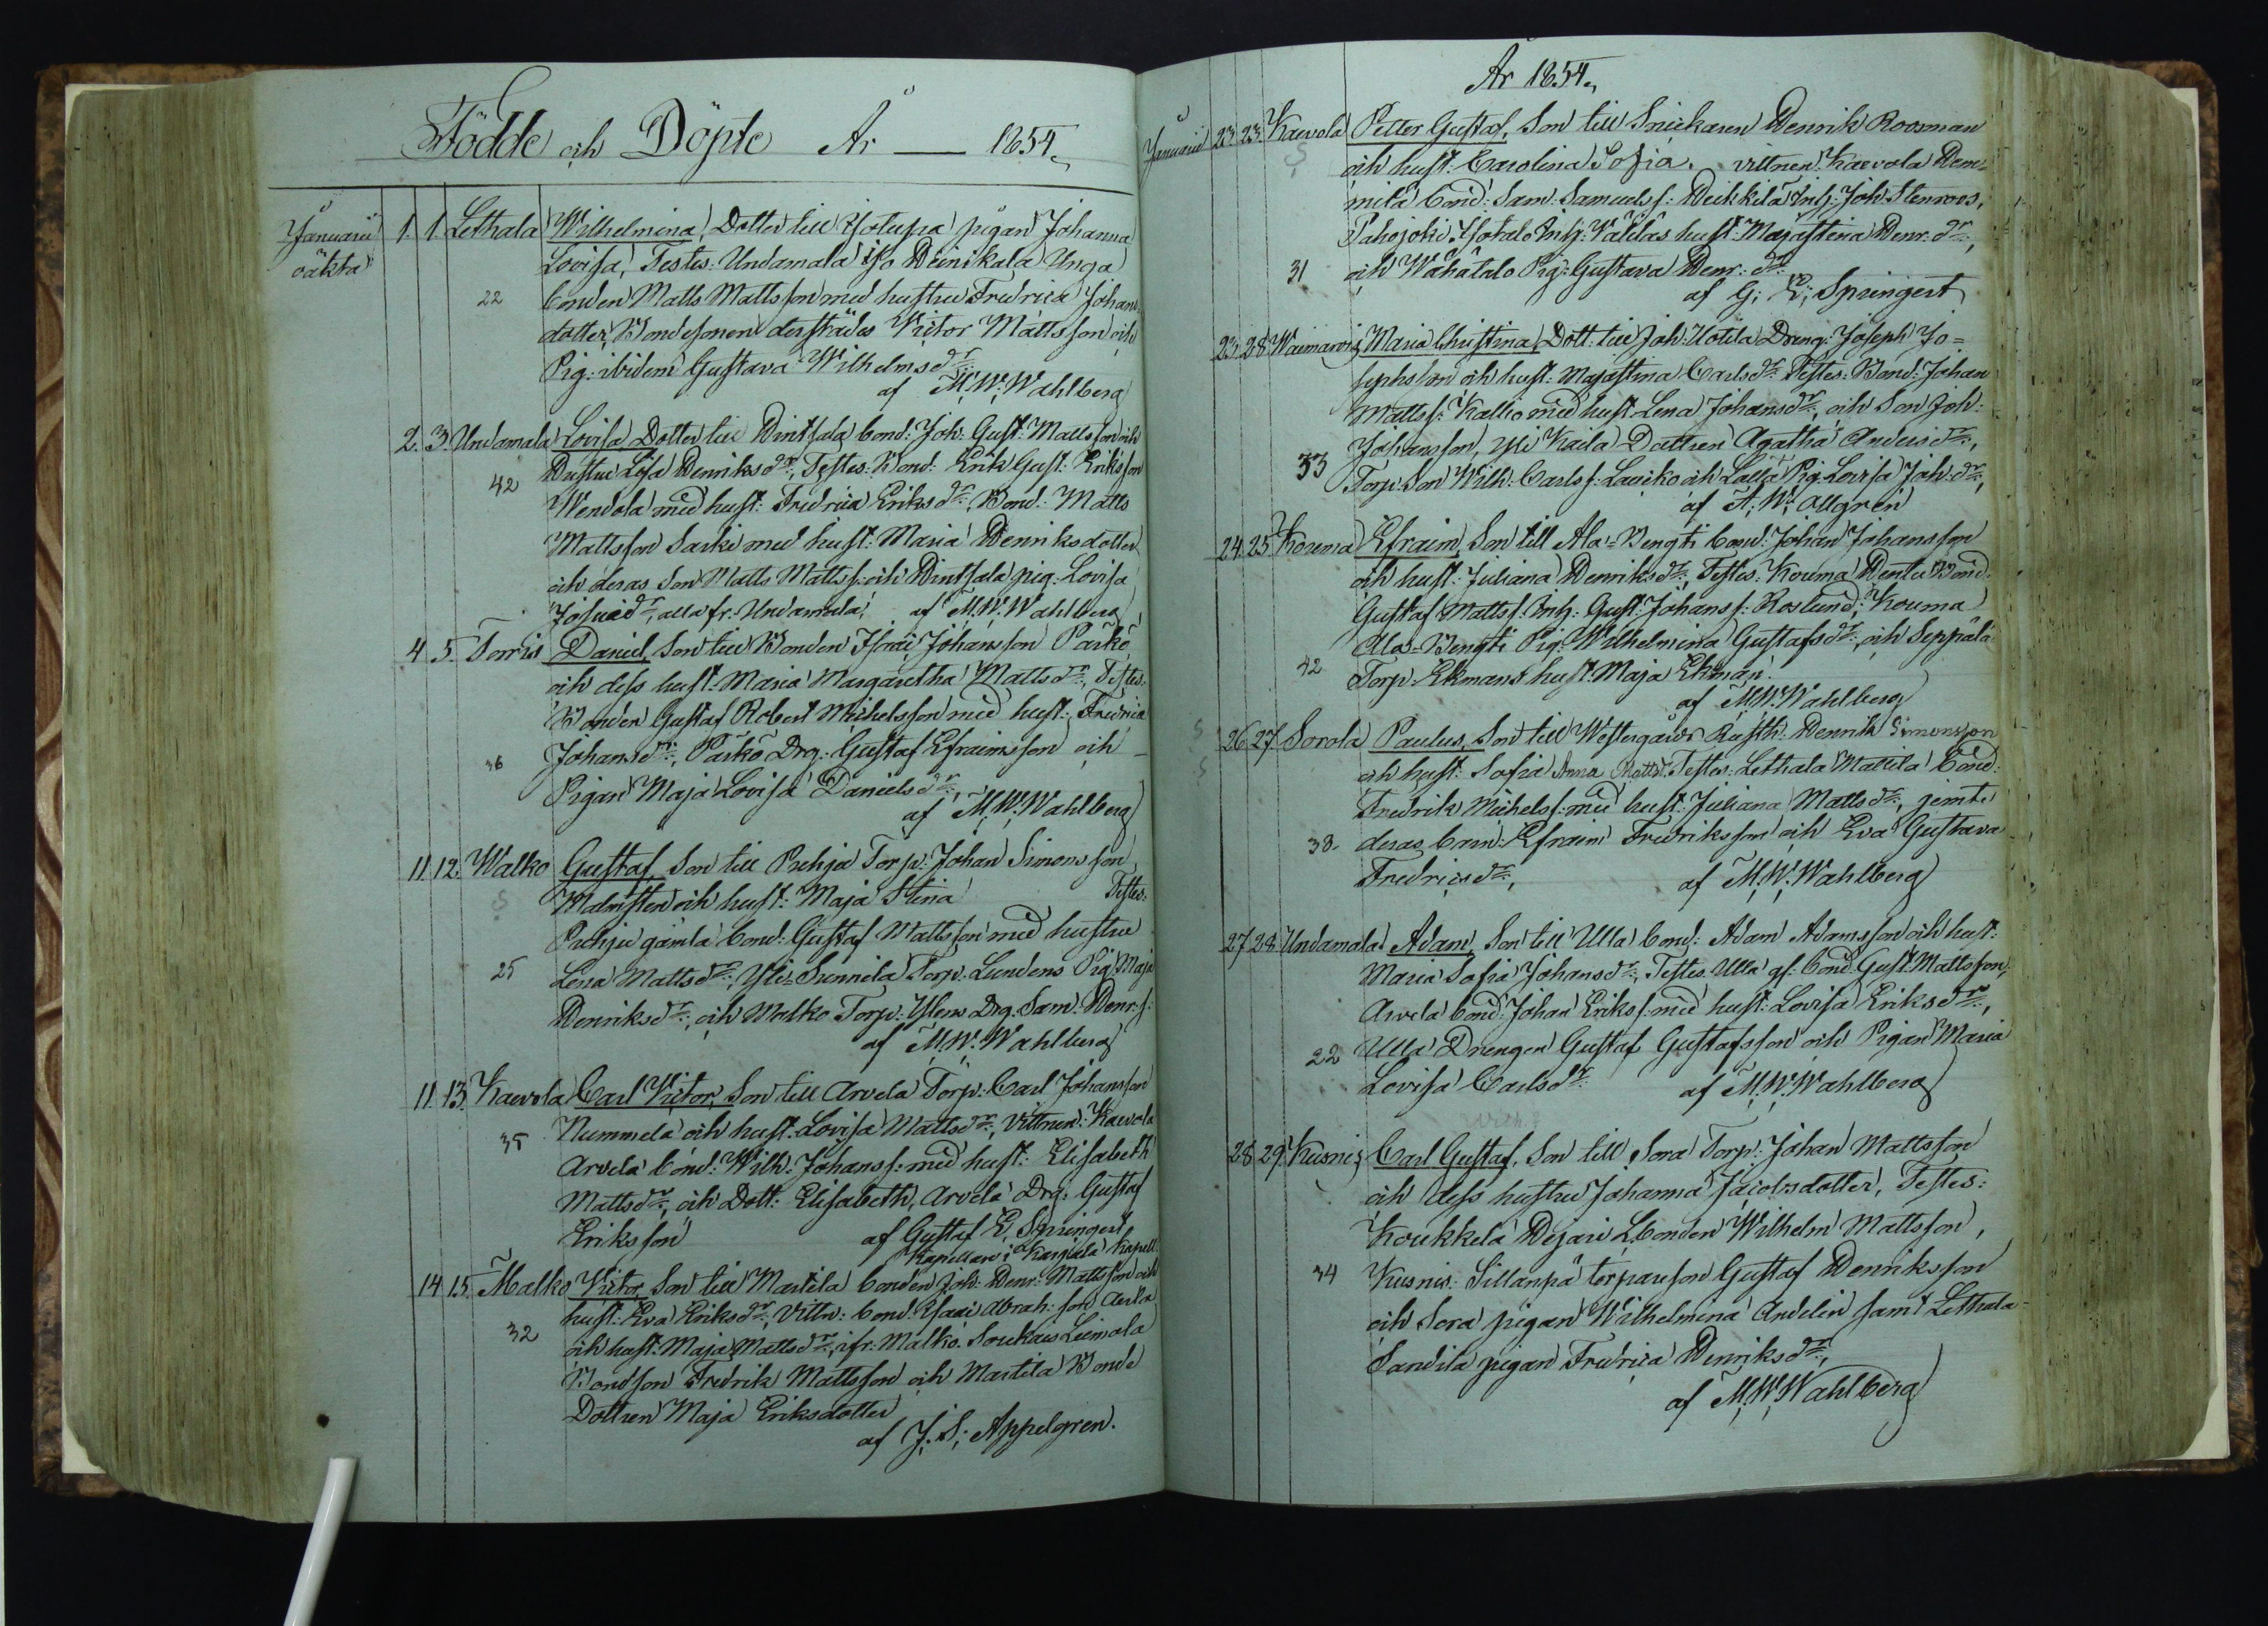 Födde och Döpte År — 1854.
Januarii 1. 1. Lethala Wilhelmina, Dotter till Isotupa pigan Johanna
oäkta Lovisa, Testes: Undamala Iso Heinikala Unga
22 bonden Matts Mattsson med hustru Fredrica Johans
dotter, Bondesonen derstädes Victor Mattsson och
Pig: ibidem Gustava Wilhelmsdr.
af M. W. Wahlberg
2. 3. Undamala Lovisa, Dotter till Hintsala bond: Joh: Gust: Mattsson och
42 Hustru Lisa Henriksdr:, Testes: Bond: Erik Gust: Eriksson
Wendola med hust: Fredrica Eriksdr:, Bond: Matts
Mattsson Sarki med hust: Maria Henriksdotter
och deras Son Matts Mattss: och Hintsala pig: Lovisa
Josuædr:, alla fr. Undamala, af M. W. Wahlberg
4 5. Torris Daniel, Son till Bonden Isrāi Johansson Parkō
och dess hust: Maria Margaretha Mattsdr:, Testes:
Bonden Gustaf Robert Michelsson med hust: Fredrica
36 Johansdr:, Parkō Drg: Gustaf Efraimsson och
Pigan Maja Lovisa Danielsdr:,
af M. W. Wahlberg
11. 12. Walko Gustaf, Son till Prihja Torp: Johan Simonsson
Malmsten och hust: Maja Stina Testes:
Prihja gamla bond: Gustaf Mattsson med hustru
25 Lena Mattsdr:, Yli-Sunnila Torp: Lundens Pig: Maja
Henriksdr:, och Malko Torp: Ylens Drg. Sam: Henr: s:
af M. W. Wahlberg
11. 13. Kaerola Carl Victor, Son till Arvela Torp: Carl Johansson
35 Nummela och hust: Lovisa Mattsdr:, Vittnen: Kaerola
Arvela bond: Wilh: Johanss: med hust: Elisabeth
Mattsdr:, och Dott: Elisabeth, Arvela Drg: Gustaf
Eriksson af Gustaf E. Springert,
Kapellan i Karjala Kapell
14 15. Malko Victor, Son till Martila bonden Joh: Henr: Mattsson och
hust: Eva Eriksdr:, Vittn: bond: Isaac Abrah: son
32 och hust: Maja Mattsdr:, ifr: Malko. Soukais Leimola
Bondson Fredrik Mattsson och Martila Bonde
Dottren Maja Eriksdotter
af J. S. Appelgren.
År 1854.
Januarii 23. 23. Kaerola Petter Gustaf, Son till Snickaren Henrik Roosman
och hust: Carolina Sofia. vittnen: Kaerola Hem-
mila bond: Sam: Samuelss: Heikkilä Inh: Joh: Stenroos,
Pahojoki Isotalo Inh: Wäliläs hust: Majastina Henr: dr:,
31 och Wähätalo Pig: Gustava Henr: dr:
af G. E. Springert
23. 28 Waimaro Maria Christina, Dott: till Joh: Uotila Dreng: Joseph Jo=
sephsson och hust: Majastina Carlsdr: Testes: Bond: Johan
Mattss: Kallio med hust: Lena Johansdr:, och Son Joh:
Johansson, Yli Kaila Dottren Agatha Andersdr:,
33 Torp: Son Wilh: Carlss: Lauiko och Lalla Pig: Lovisa Joh: dr:,
af A. W. Allgren
24. 25 Korema Efraim, Son till Ala-Bengti bond: Johan Johansson
och hust: Juliana Henriksdr:, Testes: Kouma Hentu Bond:
Gustaf Mattss: Inh: Gust: Johanss: Roslund, Kouma
Ala-Bengti Pig: Wilhelmina Gustafsdr:, och Seppälä
42 Torp: Ekmans hust: Maja Ekman.
af M. W. Wahlberg
26 27 Sorola Paulus, Son till Westergårds Rusth: Henrik Simonsson
och hust: Sofia Anna Mattsd. Testes: Lethala Mattila bond:
Fredrik Michelss: med hust: Juliana Mattsdr:, jemte
38 deras barn: Efraim Fredriksson och Eva Gustava
Fredricsdr:, af M. W. Wahlberg
27. 28. Undamala Adam, Son till Ulla bond: Adam Adamsson och hust:
Maria Sofia Johansdr:, Testes Ulla gl: bond: Gust: Mattsson,
Arvela bond: Johan Erikss: med hust: Lovisa Eriksdr:,
22 Ulla Drengen Gustaf Gustafsson och Pigan Maria
Lovisa Carlsdr: af M. W. Wahlberg
28 29. Kusnis Carl Gustaf, Son till Sora Torp: Johan Mattsson
och dess hustru Johanna Jacobsdotter, Testes:
Koukkela Hejari Lbonden Wilhelm Mattsson,
34 Kusnis: Sillanpä torpareson Gustaf Henriksson
och Sora pigan Wilhelmina Andelin samt Lethala
Sandila pigan Fredrica Henriksdr:,
af M. W. Wahlberg